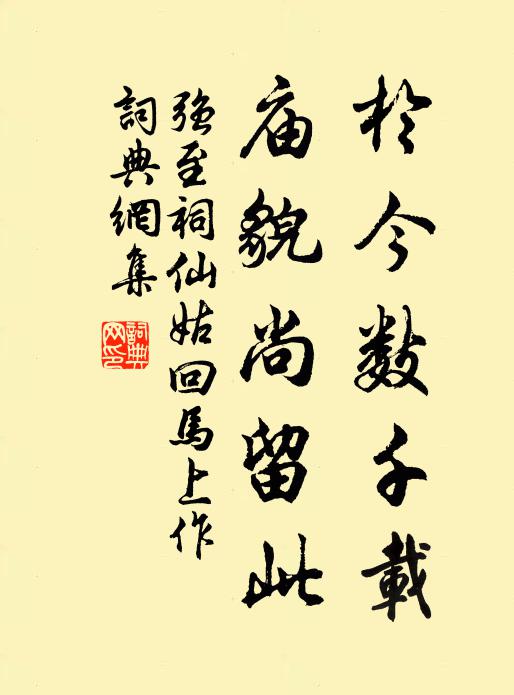 於今数千載
庙貌尚留此
强至祠仙姑回馬上作
詞典網集
詞典网印